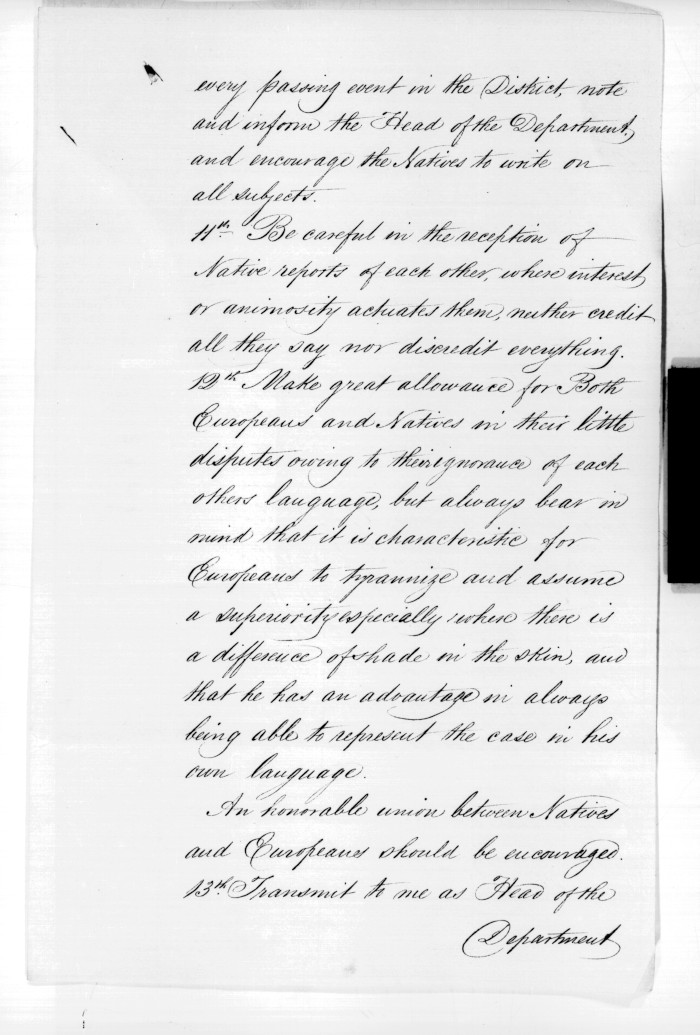 every passing event in the District, note
and inform the Head of the Department,
and encourage the Natives to write on
all subjects.
11th Be careful in the reception of
Native reports of each other, where interest
or animosity actuates them, neither credit
all they say nor discredit everything.
12th Make great allowance for Both
Europeans and Natives in their little
disputes owing to their ignorance of each
others language, but always bear in
mind that it is characteristic for
Europeans to tyrannize and assume
a superiority especially where there is
a difference of shade in the skin, and
that he has an advantage in always
being able to represent the case in his
own language.
An honorable union between Natives
and Europeans should be encouraged.
13th Transmit to me as Head of the
Department